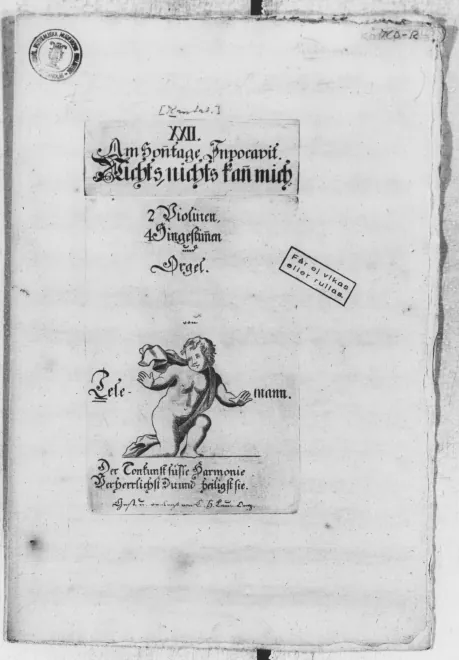 XXII.
Am Soñtage, Invocavit.
Nichts, nichts kañ mich
2 Violinen,
4 Singestim̃en
und
Orgel.
Får ej vikas
eller rullas.
von
Tele- mann.
Der Tonkunst süsse Harmonie
Verherrlichst Du und heiligst sie.